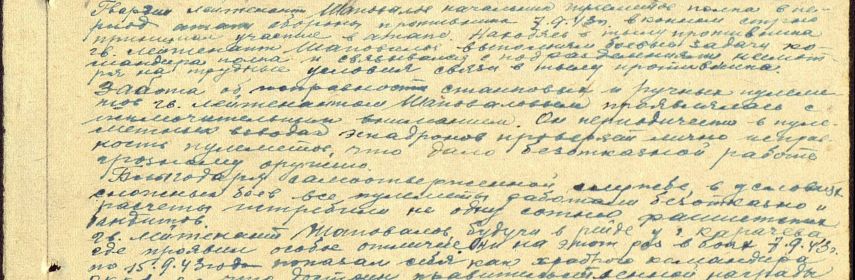 Гвардии лейтенант Шаповалов начальник пулеметов полка в пе-
риод атаки обороны противника 7.9.43г. в конном строю
принимал участие в атаке. Находясь в тылу противника
гв. лейтенант Шаповалов выполнял боевые задачи ко-
мандира полка и связывался с подразделениями несмот-
ря на трудные условия связи в тылу противника.
Забота об исправности станковых и ручных пулеме-
тов гв. лейтенантом Шаповаловым проявлялась с
исключительным вниманием. Он периодически в пуле-
метных взводах эскадронов проверяет лично исправ-
ность пулеметов, что дало безотказной работе
грозному оружию.
Благодаря самоотверженной службе, в условиях
сложных боев все пулеметы работали безотказно и
расчеты истребили не одну сотню фашистских
бандитов.
гв. лейтенант Шаповалов, будучи в рейде у г. Карачева
где проявил особое отличие. Он на этот раз в боях 7.9.43г.
по 15.9.43 года показал себя как храброго командира
что достоин правительственной награды